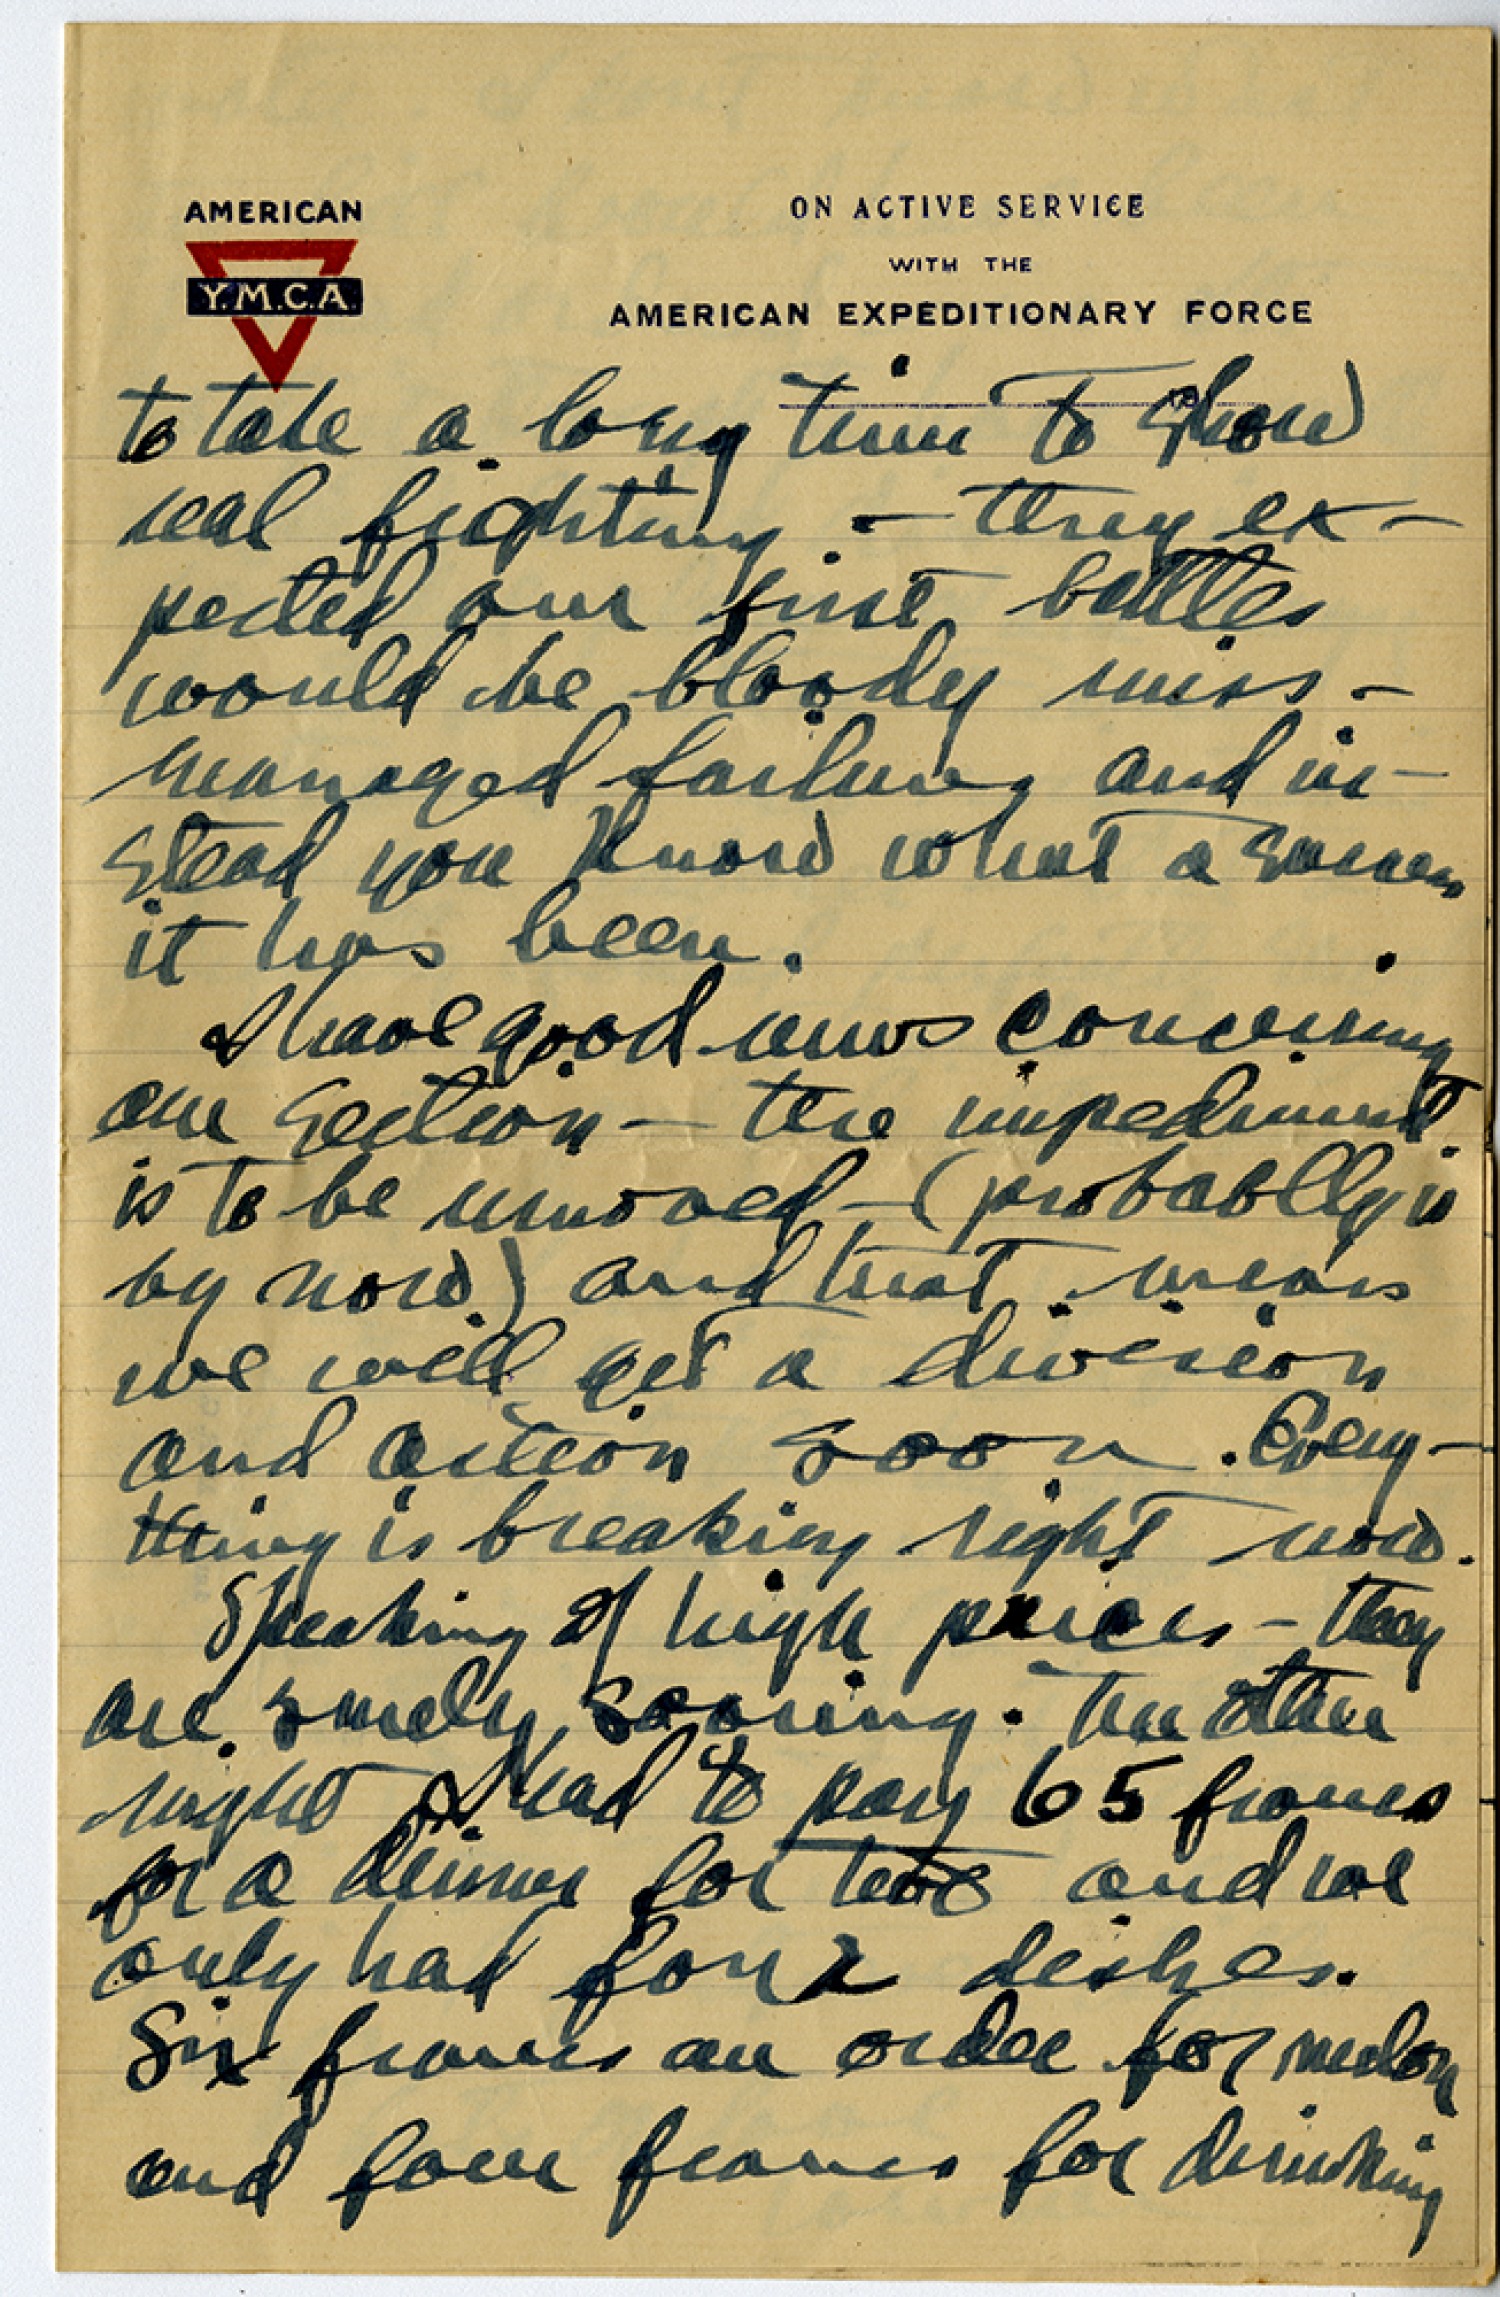 AMERICAN
Y.M.C.A.
ON ACTIVE SERVICE
WITH THE
AMERICAN EXPEDITIONARY FORCE
to take a long time to show
real fighting - they ex-
pected our first battles
would be bloody miss-
managed failures and in-
stead you know what a success
it has been.
I have good news concerning
our Section - the impediment
is to be removed - (probablly is
by now) and that means
we will get a division
and action soon. Every-
thing is breaking right now.
Speaking of high prices - they
are surely soaring. The other
night I had to pay 65 francs
for a dinner for two and we
only had four dishes.
Six francs an order for melon
and four francs for drinking